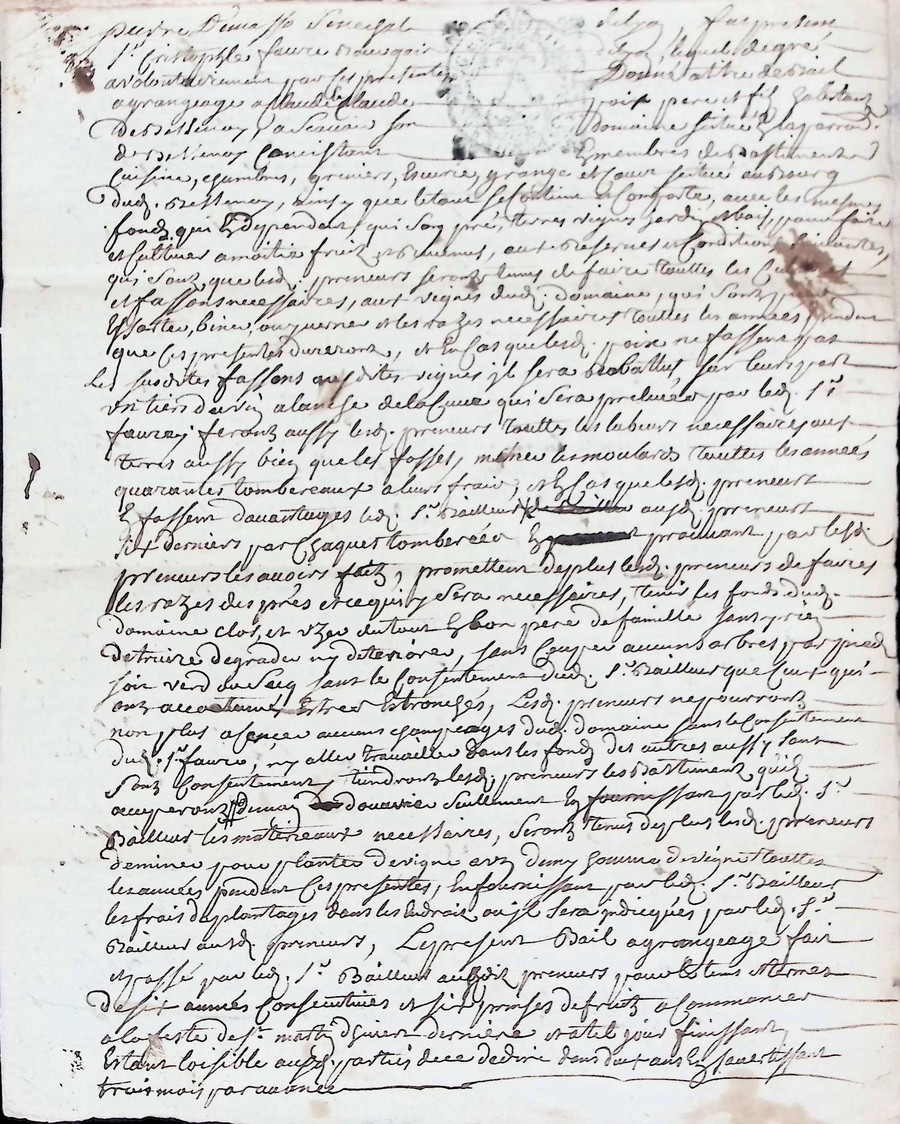 pierre Demasso Senechal delyon fut present
Sr. Cristophle faure Bourgois delyon lequel degré
a volontairement par ces presentes Donné a titre de Bail
a grangeage a Claude pere et fils habitant
de Bessenay a Sçavoir son Domaine situé En la parroi.
de Bessenay Concistant En membres de Bastiments
Cuisine, chambres, greniers, Ecurie, grange et Cour situé au Bourg
dud. Bessenay, ainsy que le tout se Contient et Comporte, avec les mesmes
fonds qui En dependent qui sont pré, terres vignes et bois, pour faire
et Cultiver a moitié fruit et Revenus, aux Reserves et Conditions suivantes,
qui sont que lesd. preneurs seront tenus de faire touttes les
et fassons necessaires, aux vignes dud. domaine, qui sont
et les razes necessaires touttes les années pendant
que Ces presentes dureront, et En Cas que lesd. ne fassent pas
Les susdites fassons aux dites vignes il sera Rabattus, sur leur part
un tiers du vin a l'anche de la Cuve qui Sera prelevée par led. Sr.
faure; feront aussy lesd. preneurs touttes les labeurs necessaires aux
terres aussy bien que les fosses, mener les moulards touttes les années
quarantes tombereaux a leurs frais, et En Cas que lesd. preneurs
En fassent davantages led. Sr. Bailleur auxd. preneurs
Six derniers par Chaque tombereée En par lesd.
preneurs les avoirs faits, promettent de plus lesd. preneurs de faires
les razes des prés et ce qui y Sera necessaires, tenir les fonds dud.
domaine clos, et uzer du tout En bon pere de famille sans rien
detruire degrader ny deteriorer, sans Couper aucuns arbres, par pied
soit verd ou secq sans le Consentement dud. Sr. Bailleur que Ceux qui
ont accoutumés Estres Estronchés, Lesd. preneurs ne pourront
non plus aucuns dud. domaine sans le Consentement
dud. Sr. faure, ny aller travailler dans les fonds des autres aussy sans
Sont Consentement, tiendront lesd. preneurs les Bastiments quils
occuperont de main douvrier seulement En fournissant par led. Sr.
Bailleur les materieaux necessaires, seront tenus de plus lesd. preneurs
de miner pour planter de vigne un demy homme de vigne touttes
les années pendant Ces presentes, En fournissant par led. Sr. Bailleur
les frais du plantages dans les Endroits ou il Sera indicqués par led. Sr.
Bailleur auxd. preneurs, Le present Bail a grangeage fait
et passé par led. Sr. Bailleur auxdits preneurs pour le tems et terme
de six années Consecutives et six prinses de fruits a Commancer
a la feste de St. martin d'hiver derniere et a tel jour finissant,
Estant loisible auxd. parties de ce dedire dans deux ans En savertissant
trois mois par avance